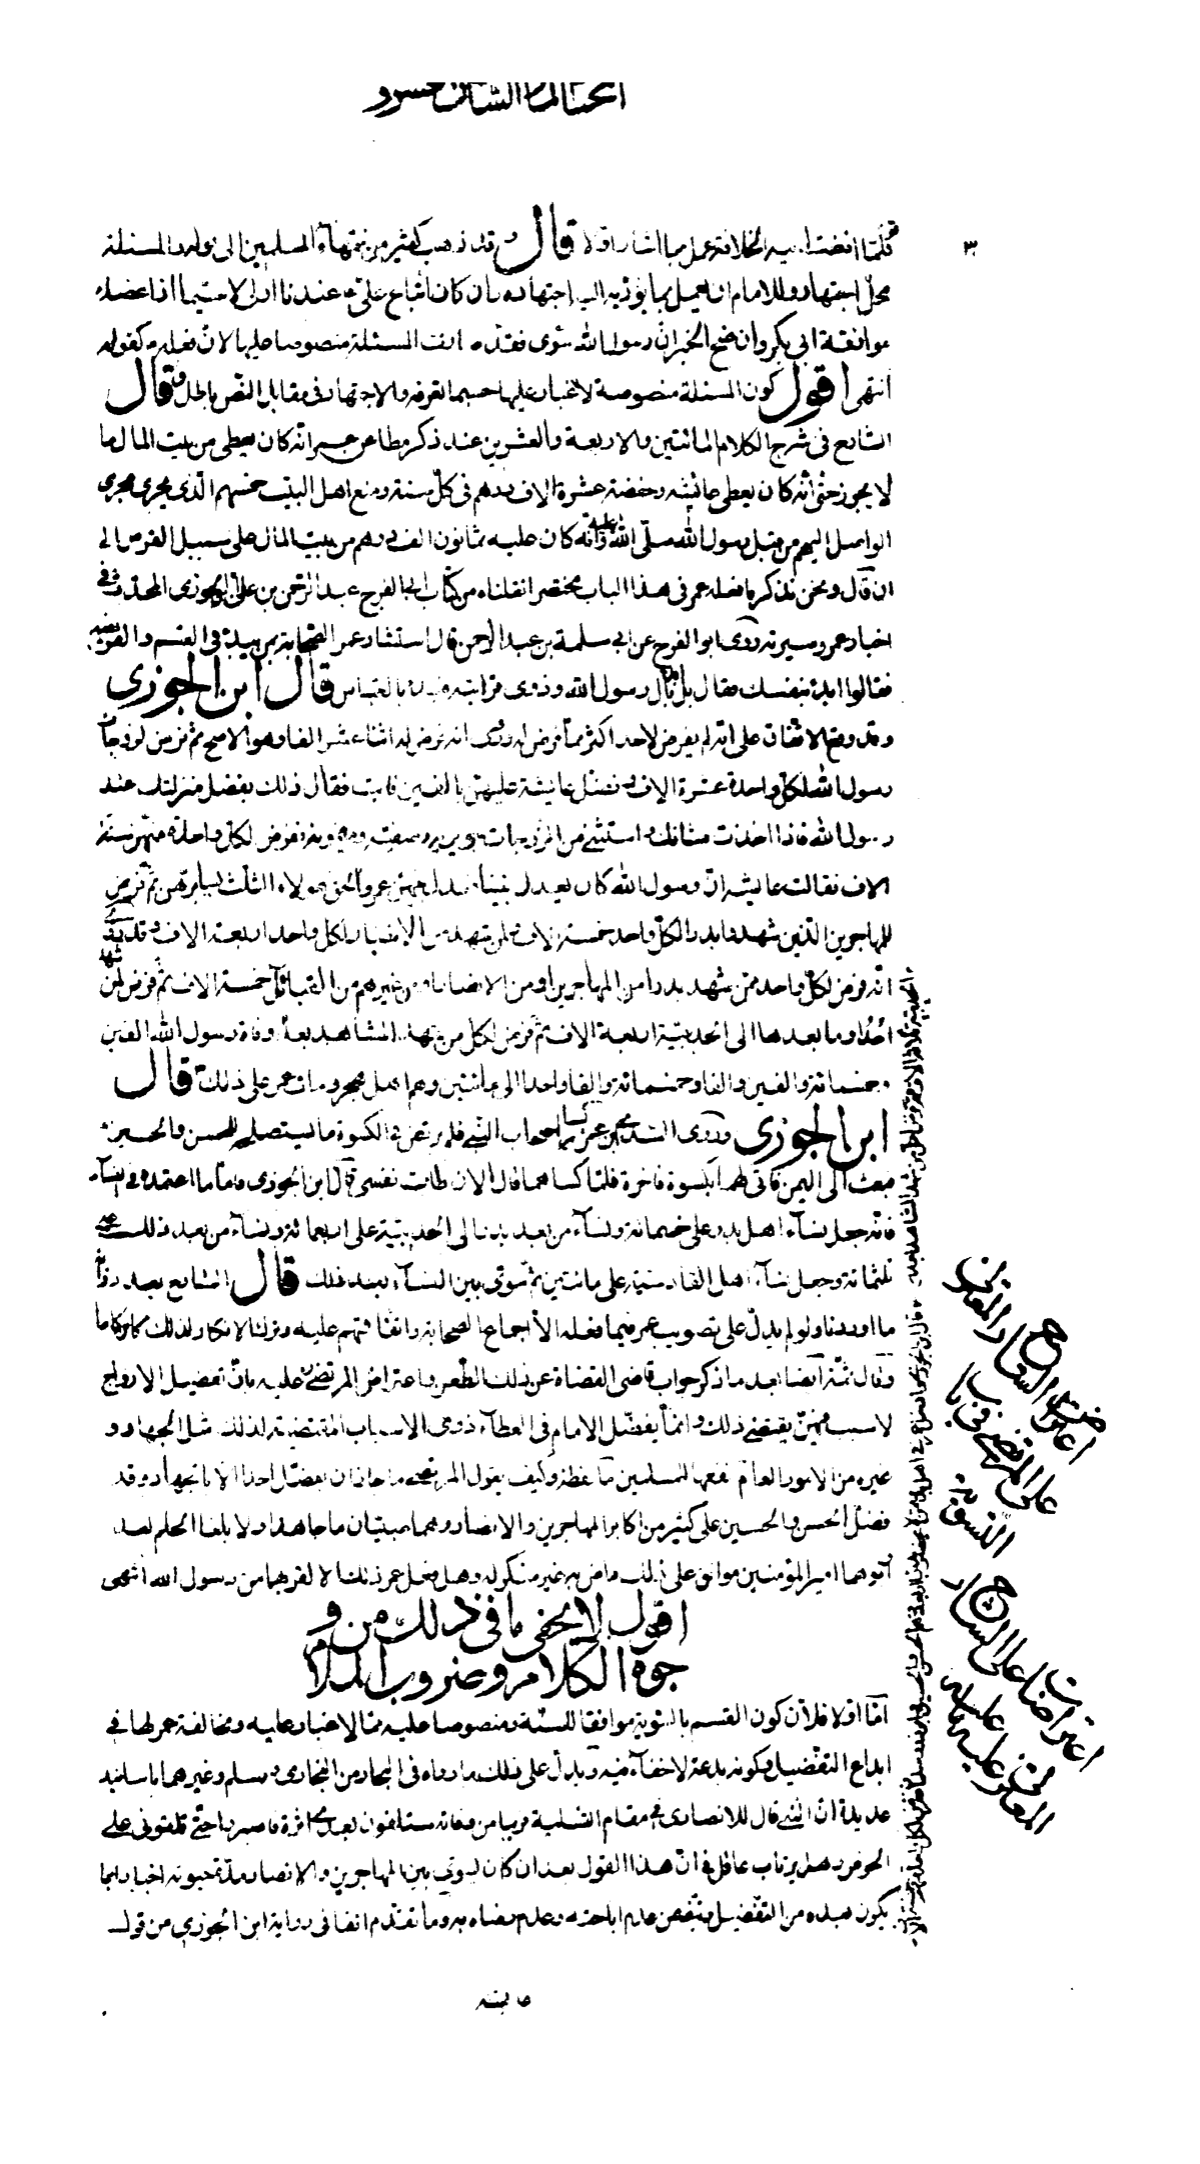 ٣
فلما افضت اليه الخلافة عمل بما اشار اولا قال وقد ذهب كثير من فقهاء المسلمين الى قوله والمسئلة
محل اجتهاد وللامام ان يعمل بما يؤديه اليه اجتهاده وان كان اتباع علي عندنا اولى لا سيما اذا عضده
موافقة ابي بكر وان صح الخبر ان رسول الله سوى فقد صارت المسئلة منصوصا عليها لان فعله كقوله
انتهى اقول كون المسئلة منصوصة لا غبار عليها حسبما تعرفه والاجتهاد في مقابل النص باطل وقال
الشارح في شرح الكلام المائتين والاربعة والعشرين عند ذكر مطاعن عمر انه كان يعطي من بيت المال ما
لا يجوز حتى انه كان يعطي عائشة وحفصة عشرة الاف درهم في كل سنة ومنع اهل البيت خمسهم الذي يجري مجرى
الواصل اليهم من قبل رسول الله صلى الله عليه وانه كان عليه ثمانون الف درهم من بيت المال على سبيل القرض الى
ان قال ونحن نذكر ما فعله عمر في هذا الباب مختصرا نقلناه من كتاب ابي الفرج عبد الرحمن بن علي الجوزي المحدث في
اخبار عمر وسيرته روى ابو الفرج عن ابي سلمة بن عبد الرحمن قال استشار عمر الصحابة بمن يبدء في القسم والفريضة
فقالوا ابدء بنفسك فقال بل ابدء بال رسول الله وذوي قرابته فبدء بالعباس قال ابن الجوزي
وقد وقع الاتفاق على انه لم يفرض لاحد اكثر مما فرض له روي انه فرض له اثنا عشر الفا وهو الاصح ثم فرض لزوجات
رسول الله لكل واحدة عشرة الاف وفضل عايشة عليهن بالفين فابت فقال ذلك بفضل منزلتك عند
رسول الله فاذا اخذت فشانك واستثنى من الزوجات جويرية وصفية وميمونة ففرض لكل واحدة منهن ستة
الاف فقالت عايشة ان رسول الله كان يعدل بيننا فعدل عمر والحق هؤلاء الثلث بسايرهن ثم فرض
للمهاجرين الذين شهدوا بدرا لكل واحد خمسة الاف ولمن شهدها من الانصار لكل واحد اربعة الاف وقد روي
انه فرض لكل واحد ممن شهد بدرا من المهاجرين او من الانصار او من غيرهم من القبائل خمسة الاف ثم فرض لمن شهد
احدا وما بعدها الى الحديبية اربعة الاف ثم فرض لكل من شهد المشاهد بعد وفاة رسول الله الفين
وخمسمائة والفين والفا وخمسمائة والفا واحدا الى مائتين وهم اهل هجر ومات عمر على ذلك قال
ابن الجوزي وروى السدي ان عمر كسا اصحاب النبي فلم يرتض في الكسوة ما يستصلحه للحسن والحسين
فبعث الى اليمن فاتى لهما بكسوة فاخرة فلما كساهما قال الان طابت نفسي قال ابن الجوزي فاما ما اعتمده في النساء
فانه جعل نساء اهل بدر على خمسمائة ونساء من بعد بدر الى الحديبية على اربعمائة ونساء من بعد ذلك على
ثلثمائة وجعل نساء اهل القادسية على مائتين ثم سوى بين النساء بعد ذلك قال الشارح بعد
ما اوردنا ولو لم يدل على تصويب عمر فيما فعله الا اجماع الصحابة واتفاقهم عليه وترك الانكار لذلك كان كافيا
وقال ثمة ايضا بعد ما ذكر جواب قاضي القضاة عن ذلك الطعن واعتراض المرتضى عليه بان تفضيل الازواج
لا سبب فيهن يقتضي ذلك وانما يفضل الامام في العطاء ذوي الاسباب المقتضية لذلك مثل الجهاد و
غيره من الامور العام نفعها للمسلمين ما لفظه وكيف يقول المرتضى ما جاز ان يفضل احدا الا بالجهاد وقد
فضل الحسن والحسين على كثير من اكابر المهاجرين والانصار وهما صبيان ما جاهدا ولا بلغا الحلم بعد
وابوهما امير المؤمنين موافق على ذلك راض به غير منكر له وهل فعل عمر ذلك الا لقربهما من رسول الله انتهى
اقول لا يخفى ما في ذلك من و
جوه الكلام وضروب الملام
اما اولا فلان كون القسم بالسوية موافقا للسنة ومنصوصا عليه مما لا غبار عليه ومخالفة عمر لها في
ابداع التفضيل وكونه بدعة لا خفاء فيه ويدل على ذلك ما رواه في البحار من البخاري ومسلم وغيرهما باسانيد
عديدة ان النبي قال للانصار في مقام التسلية قريبا من وفاته ستلقون بعدي اثرة فاصبروا حتى تلقوني على
الحوض وهل يرتاب عاقل في ان هذا القول بعد ان كان يسوي بين المهاجرين والانصار مدة حيوته اخبار بما
يكون بعده من التفضيل ويتضمن عدم اباحته وعدم رضاه به وما تقدم انفا في رواية ابن الجوزي من قول
اعتراض الشارح
على المرتضى في باب
التسوية